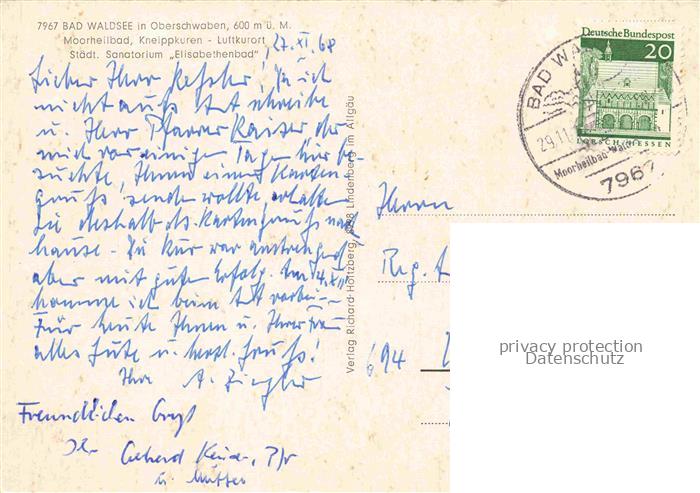 7967 BAD WALDSEE in Oberschwaben, 600 m ü. M.
Moorheilbad, Kneippkuren - Luftkurort
Städt. Sanatorium „Elisabethenbad"
27. XI. 68
Lieber Herr! Da ich
nicht aufs schreibe
u. Herr Pfarrer Kaiser der
mich vor einigen Tagen hier be-
suchte, Ihnen einen Karten
gruß senden wollte, erhalten
Sie deshalb ds. Kartengruß nach
hause. Die Kur war anstrengend
aber mit gutem Erfolg. Am 4. XII.
komme ich beim vorbei.
Für heute Ihnen u. Ihrer Frau
alles Gute u. herzl. Gruß!
Ihre A. Ziegler
Freundlichen Gruß
Ihr Gerhard Kaiser, Pfr
u. Mutter
Verlag Richard Holtzberg, 8998 Lindenberg im Allgäu
Deutsche Bundespost
20
LORSCH/HESSEN
BAD WA
29.11.
Moorheilbad-Wald
7967
Herrn
Reg.
694
privacy protection
Datenschutz